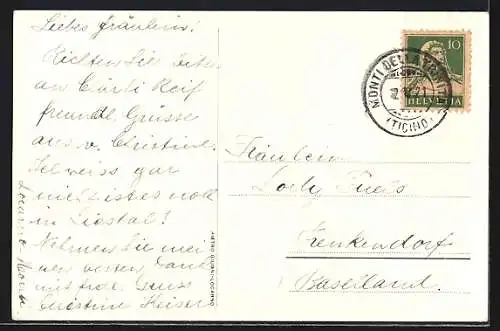 Liebes Fräulein!
Richten Sie bitte
an Bärli Reif
freundl. Grüsse
aus v. Christine.
Ich weiss gar
nicht ist es noch
in Liestal!
Nehmen Sie mei
nen besten Dank
und frdl. Gruss
Christine Keiser
Locarno Monti
MONTI DELLA TRINITÀ
(TICINO)
10
HELVETIA
Fräulein
Frenkendorf
Baselland.